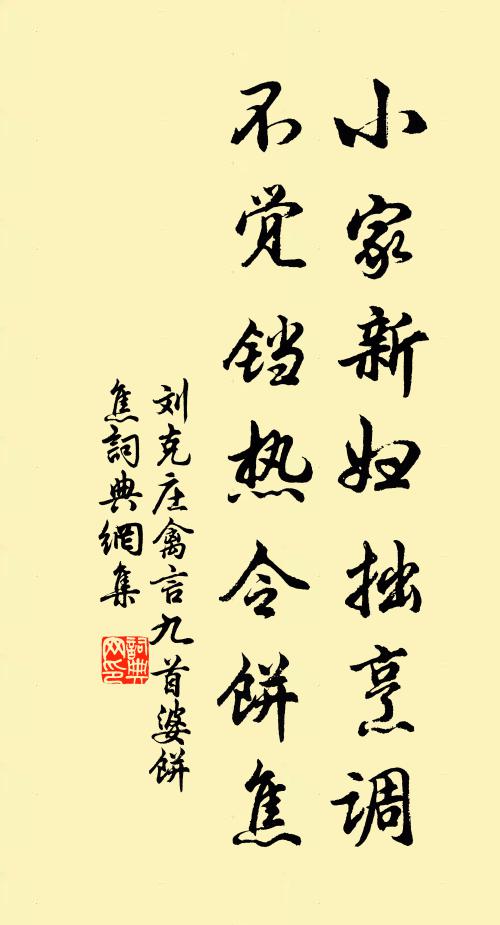 小家新妇拙烹调
不觉铛热令餅焦
刘克庄禽言九首婆餅
焦詞典網集
詞典网印